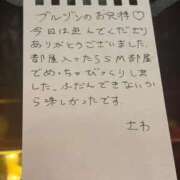 ブルゾンのお兄様♡
今日は並んでくださり
ありがとうございました。
部屋入ったらSM部屋
でめっちゃびっくりしま
した。ふだんできないから
楽しかったです。
さわ